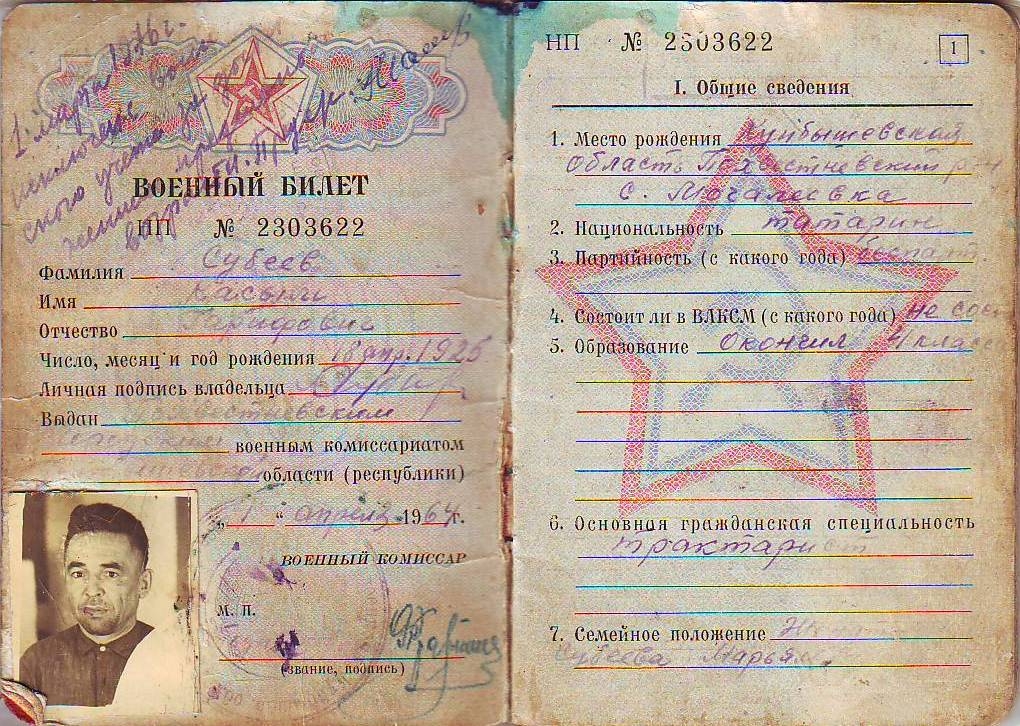 1 марта 1976 г.
исключён с воин
ского учета
возраста
ВОЕННЫЙ БИЛЕТ
НП № 2303622
Фамилия Субеев
Имя Касым
Отчество
Число, месяц и год рождения 18 апр. 1925
Личная подпись владельца
Выдан Похвистневским
военным комиссариатом
области (республики)
„1“ апреля 1964 г.
ВОЕННЫЙ КОМИССАР
М. П.
(звание, подпись)
НП № 2303622
1
I. Общие сведения
1. Место рождения Куйбышевская
область Похвистневский р-н
с. Мочалеевка
2. Национальность татарин
3. Партийность (с какого года) беспар
4. Состоит ли в ВЛКСМ (с какого года) не сост
5. Образование Окончил 4 класса
6. Основная гражданская специальность
тракторист
7. Семейное положение
Субеева Марьям